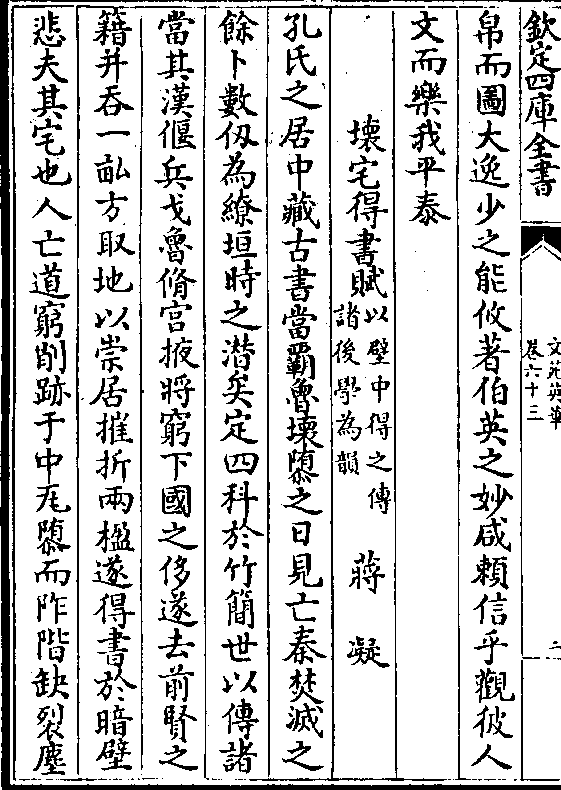 欽定四庫全書
文苑英華
卷六十三
二
帛而圖大逸少之能攸著伯英之妙咸賴信乎觀彼人
文而樂我平泰
壞宅得書賦以壁中得之傳諸後學為韻 蔣凝
孔氏之居中藏古書當霸魯壞隳之日見亡秦焚滅之
餘卜數仭為繚垣時之潜矣定四科於竹簡世以傳諸
當其漢偃兵戈魯脩宫掖將窮下國之侈遂去前賢之
籍并吞一畝方取地以崇居摧折兩楹遂得書於暗壁
悲夫其宅也人亡道窮削跡于中瓦隳而阼階缺裂塵